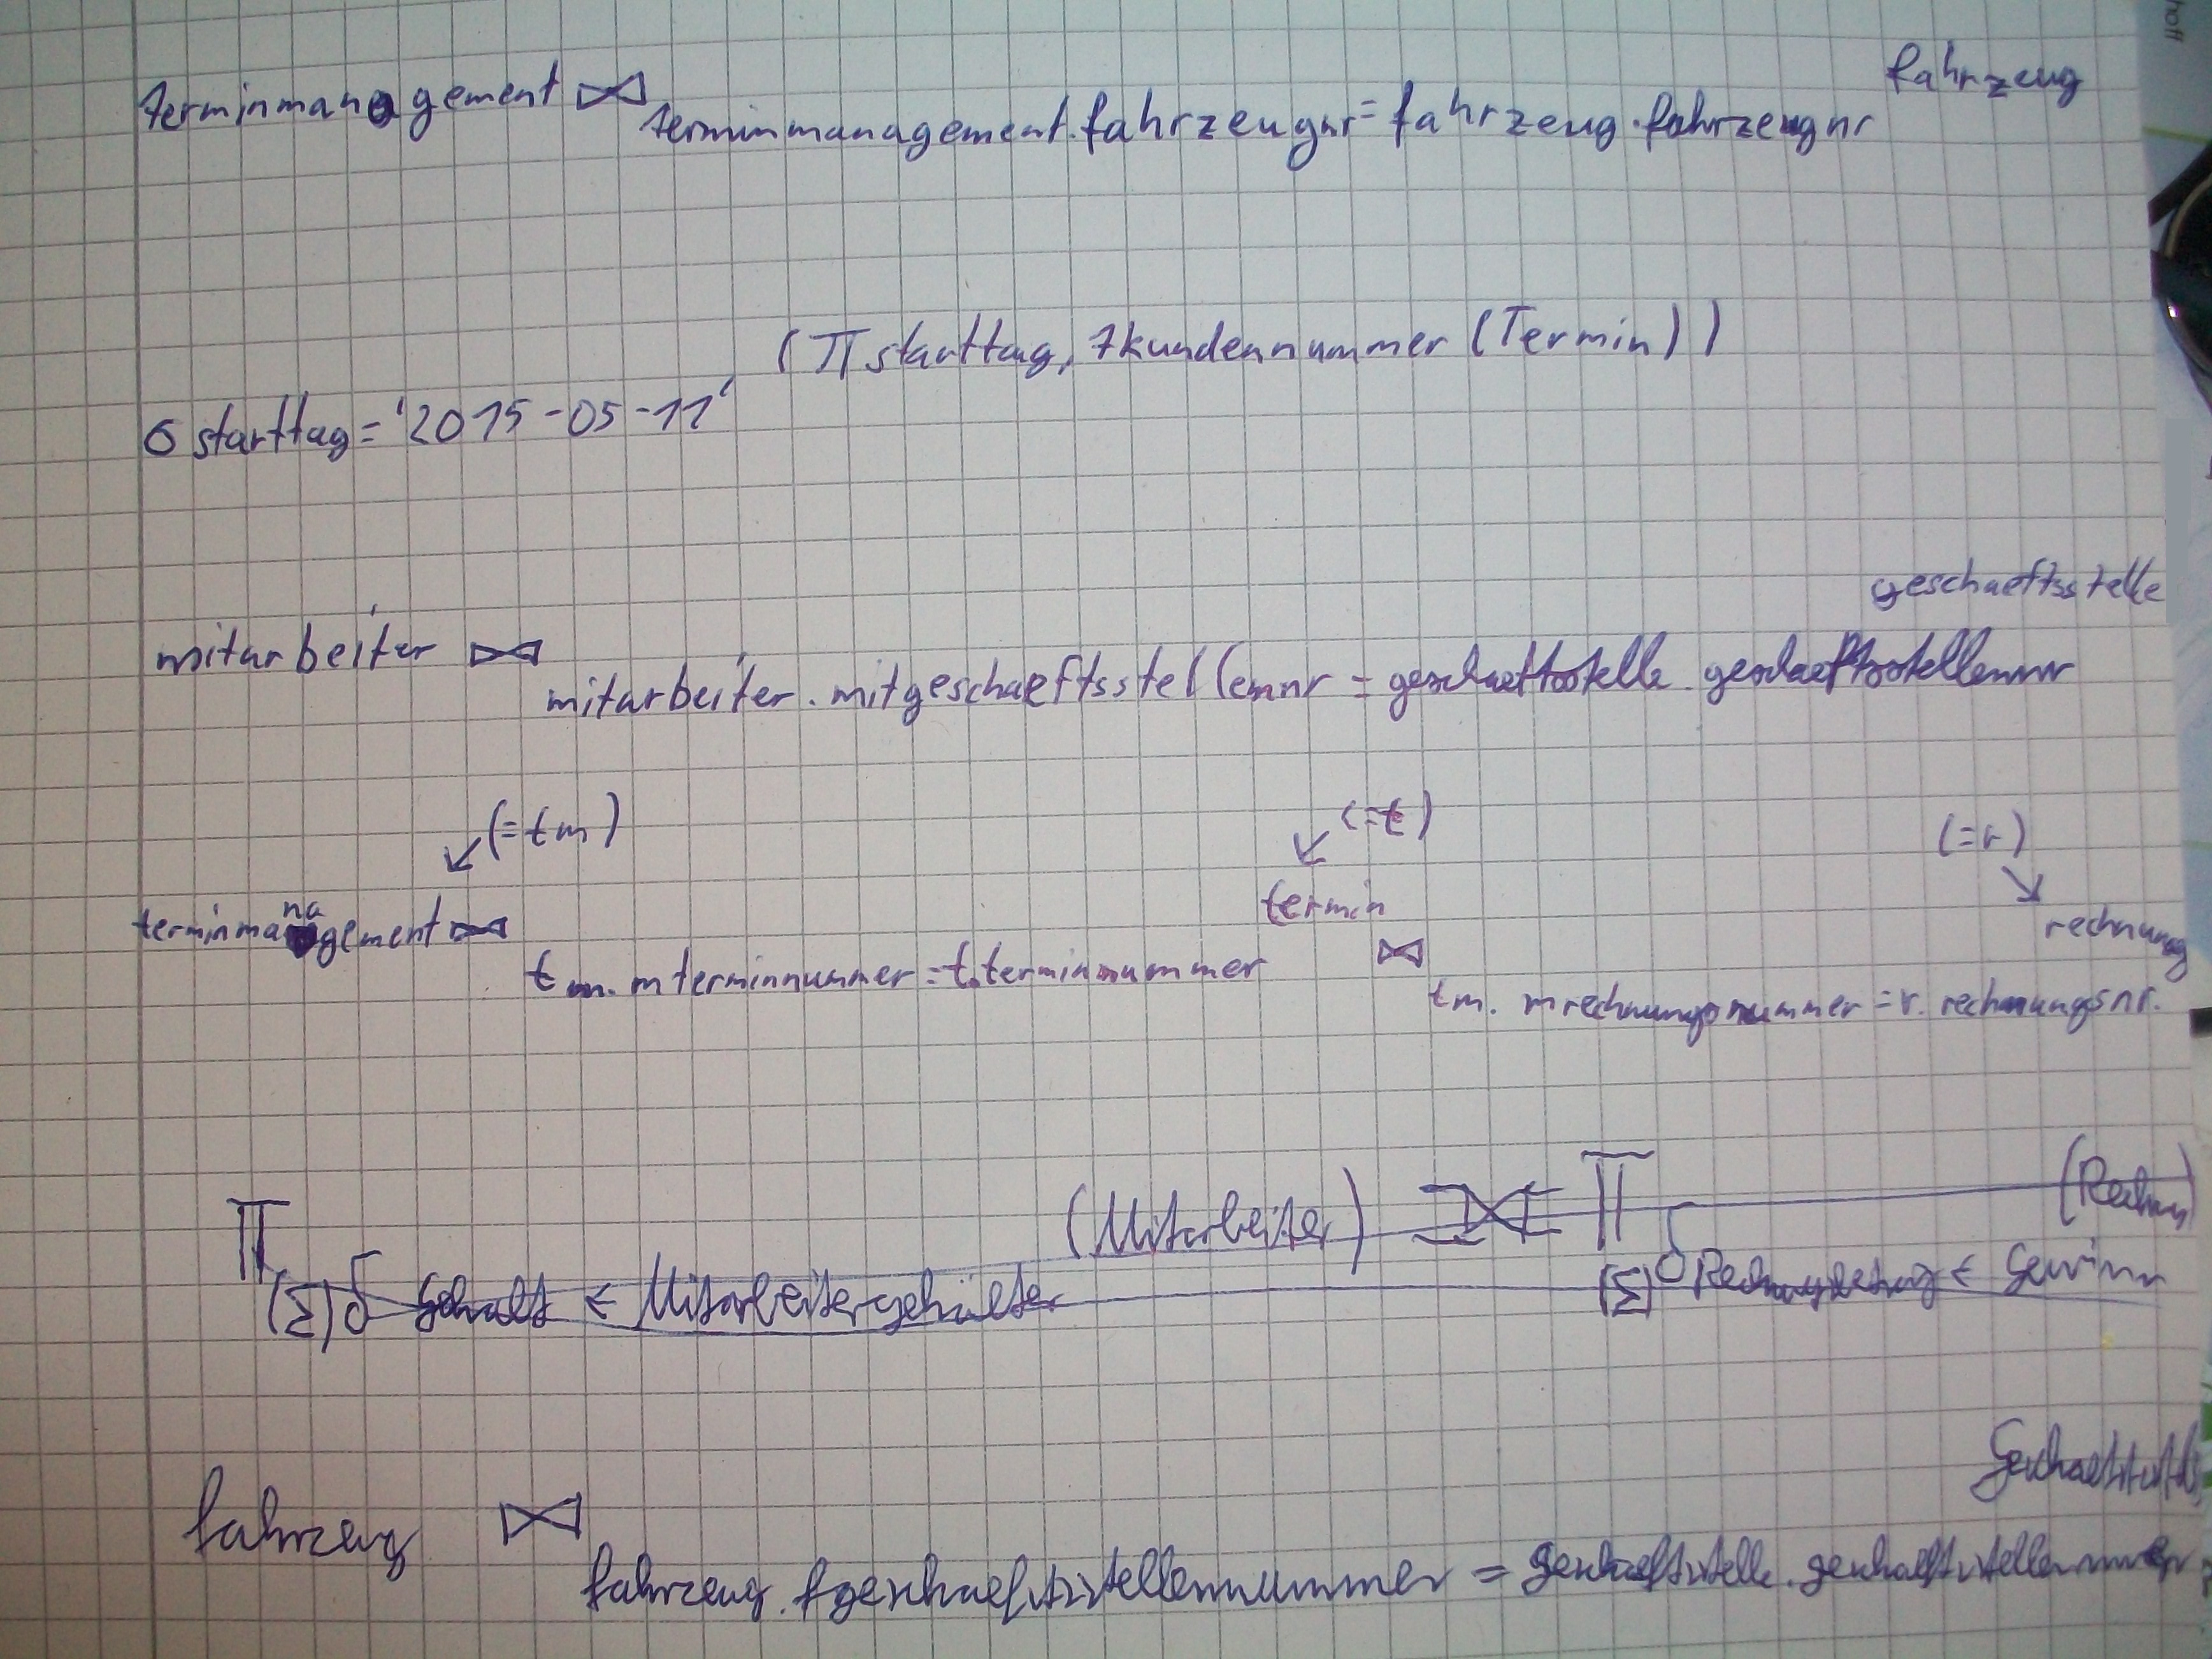 terminmanagement ⋈ terminmanagement.fahrzeugnr = fahrzeug.fahrzeugnr fahrzeug
σ starttag = '2015-05-11' (π starttag, tkundennummer (Termin))
mitarbeiter ⋈ mitarbeiter.mitgeschaeftsstellennr = geschaeftsstelle.geschaeftsstellennr geschaeftsstelle
(=tm) (=t) (=r)
terminmanagement ⋈ tm.mterminnummer = t.terminnummer termin ⋈ tm.mrechnungsnummer = r.rechnungsnr. rechnung
π (Σ) σ Gehalt ← Mitarbeitergehälter (Mitarbeiter) ⟗ π (Σ) σ Rechnungsbetrag ← Gewinn
fahrzeug ⋈ fahrzeug.fgeschaeftsstellennummer = geschaeftsstelle.geschaeftsstellennummer